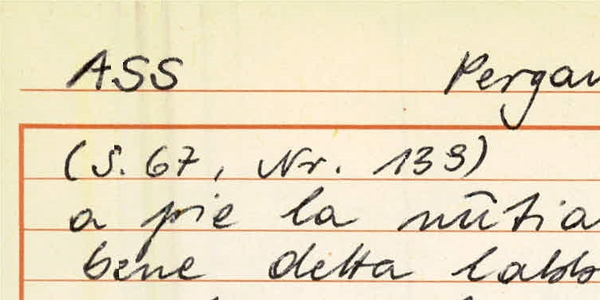 ASS Pergam
(S. 67, Nr. 139)
a pie la nũtia
bene detta labb